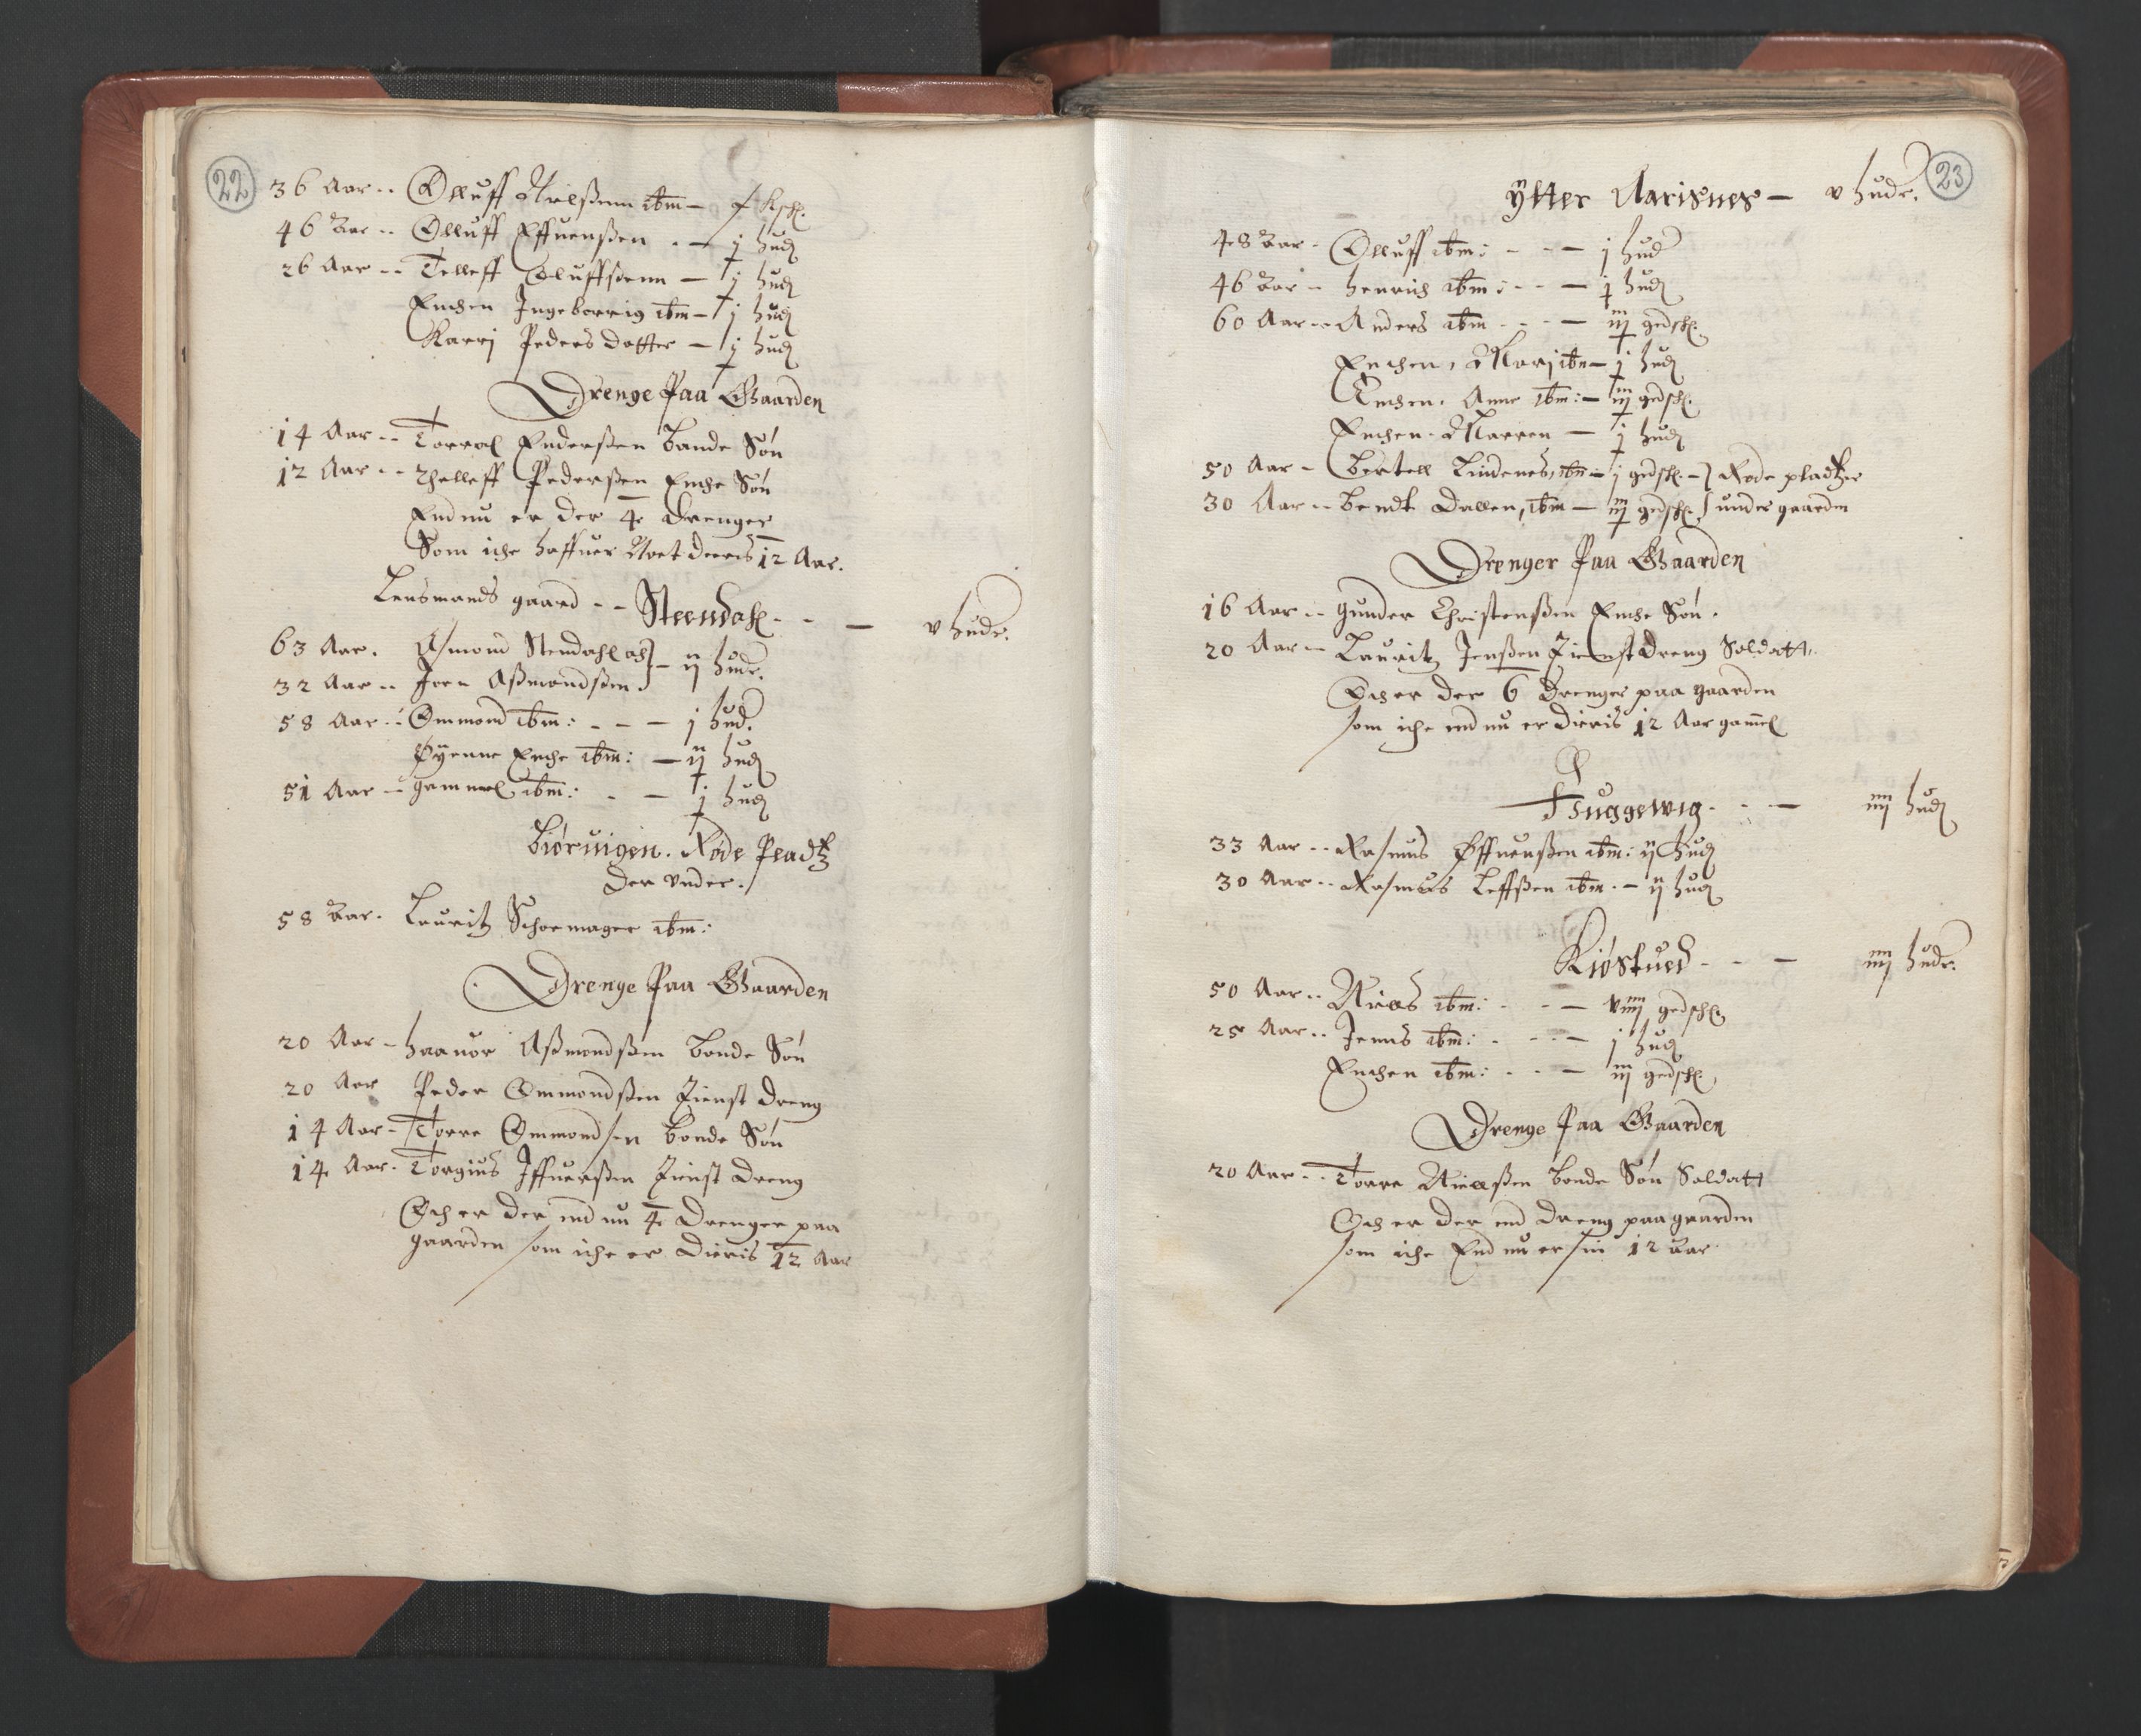 22
36 Aar -- Olluff Nielßenn ibm —
46 Aar -- Olluff Effuenßen . — j hud
26 Aar -- Telleff Oluffßenn — j hud
Enchen Ingeborrig ibm — j hud
Karri Peders datter — j hud
Drenge Paa Gaarden
14 Aar -- Torral Enderßen bonde Søn
12 Aar -- Thelleff Pederßen Enche Søn
End nu er der 4 Drenger
Som iche haffuer Noet deeris 12 Aar.
Lensmands gaard -- Steendahl - - — v huder.
63 Aar. Aſmond Stendahl och } - ij huder.
32 Aar -- Joen Aßmondßen }
58 Aar -- Ommond ibm: - - — j hud.
Øyenne Enche ibm: — ij hud
51 Aar — gammel ibm: - — j hud
Biøruigen. Røde Pladtz
der vnder.
58 Aar. Lauritz Schoemager ibm:
Drenge Paa Gaarden
20 Aar - haauor Aßmondßen bonde Søn
20 Aar Peder Ommondßen Tienst dreng
14 Aar - Torre Ommondſen bonde Søn
14 Aar. Torgius Iffuerßen Tienst dreng
Och er der end nu 4 Drenger paa
gaarden som iche er dieris 12 Aar
23
Ytter Aarisnes — v huder.
48 Aar . Olluff ibm: - - — j hud
46 Aar -- henrich ibm: - - — j hud
60 Aar -- Anders ibm - - — iij gedsch.
Enchen, Marj ibm — j hud
Enchen. Anne ibm: — iij gedsch.
Enchen. Marren — j hud
50 Aar — Bertell Lindenes, ibm — j gedsch. - } Røde pladtzer
30 Aar -- bendt Dallen, ibm — iij gedsch. } under gaarden
Drenger Paa Gaarden
16 Aar -- gunder Christenßen Enche Søn .
20 Aar — Lauritz Jenßen Tienst Dreng Soldatt.
Och er der 6 Drenger paa gaarden
som iche end nu er dieris 12 Aar gamel
Fuggewig - - — iiij hud
33 Aar -- Raſmus Øffuenßen ibm: ij hud
30 Aar -- Raſmus Leffßen ibm. — ij hud
Kiøstued - - — iiij huder.
50 Aar -- Niels ibm: - - — viiij gedsch.
25 Aar -- Jenns ibm: - - — j hud
Enchen ibm: - - — iij gedsch.
Drenge Paa Gaarden
20 Aar -- Torre Nielßen bonde Søn Soldatt
Och er der end dreng paa gaarden
som iche End nu er sin 12 Aar